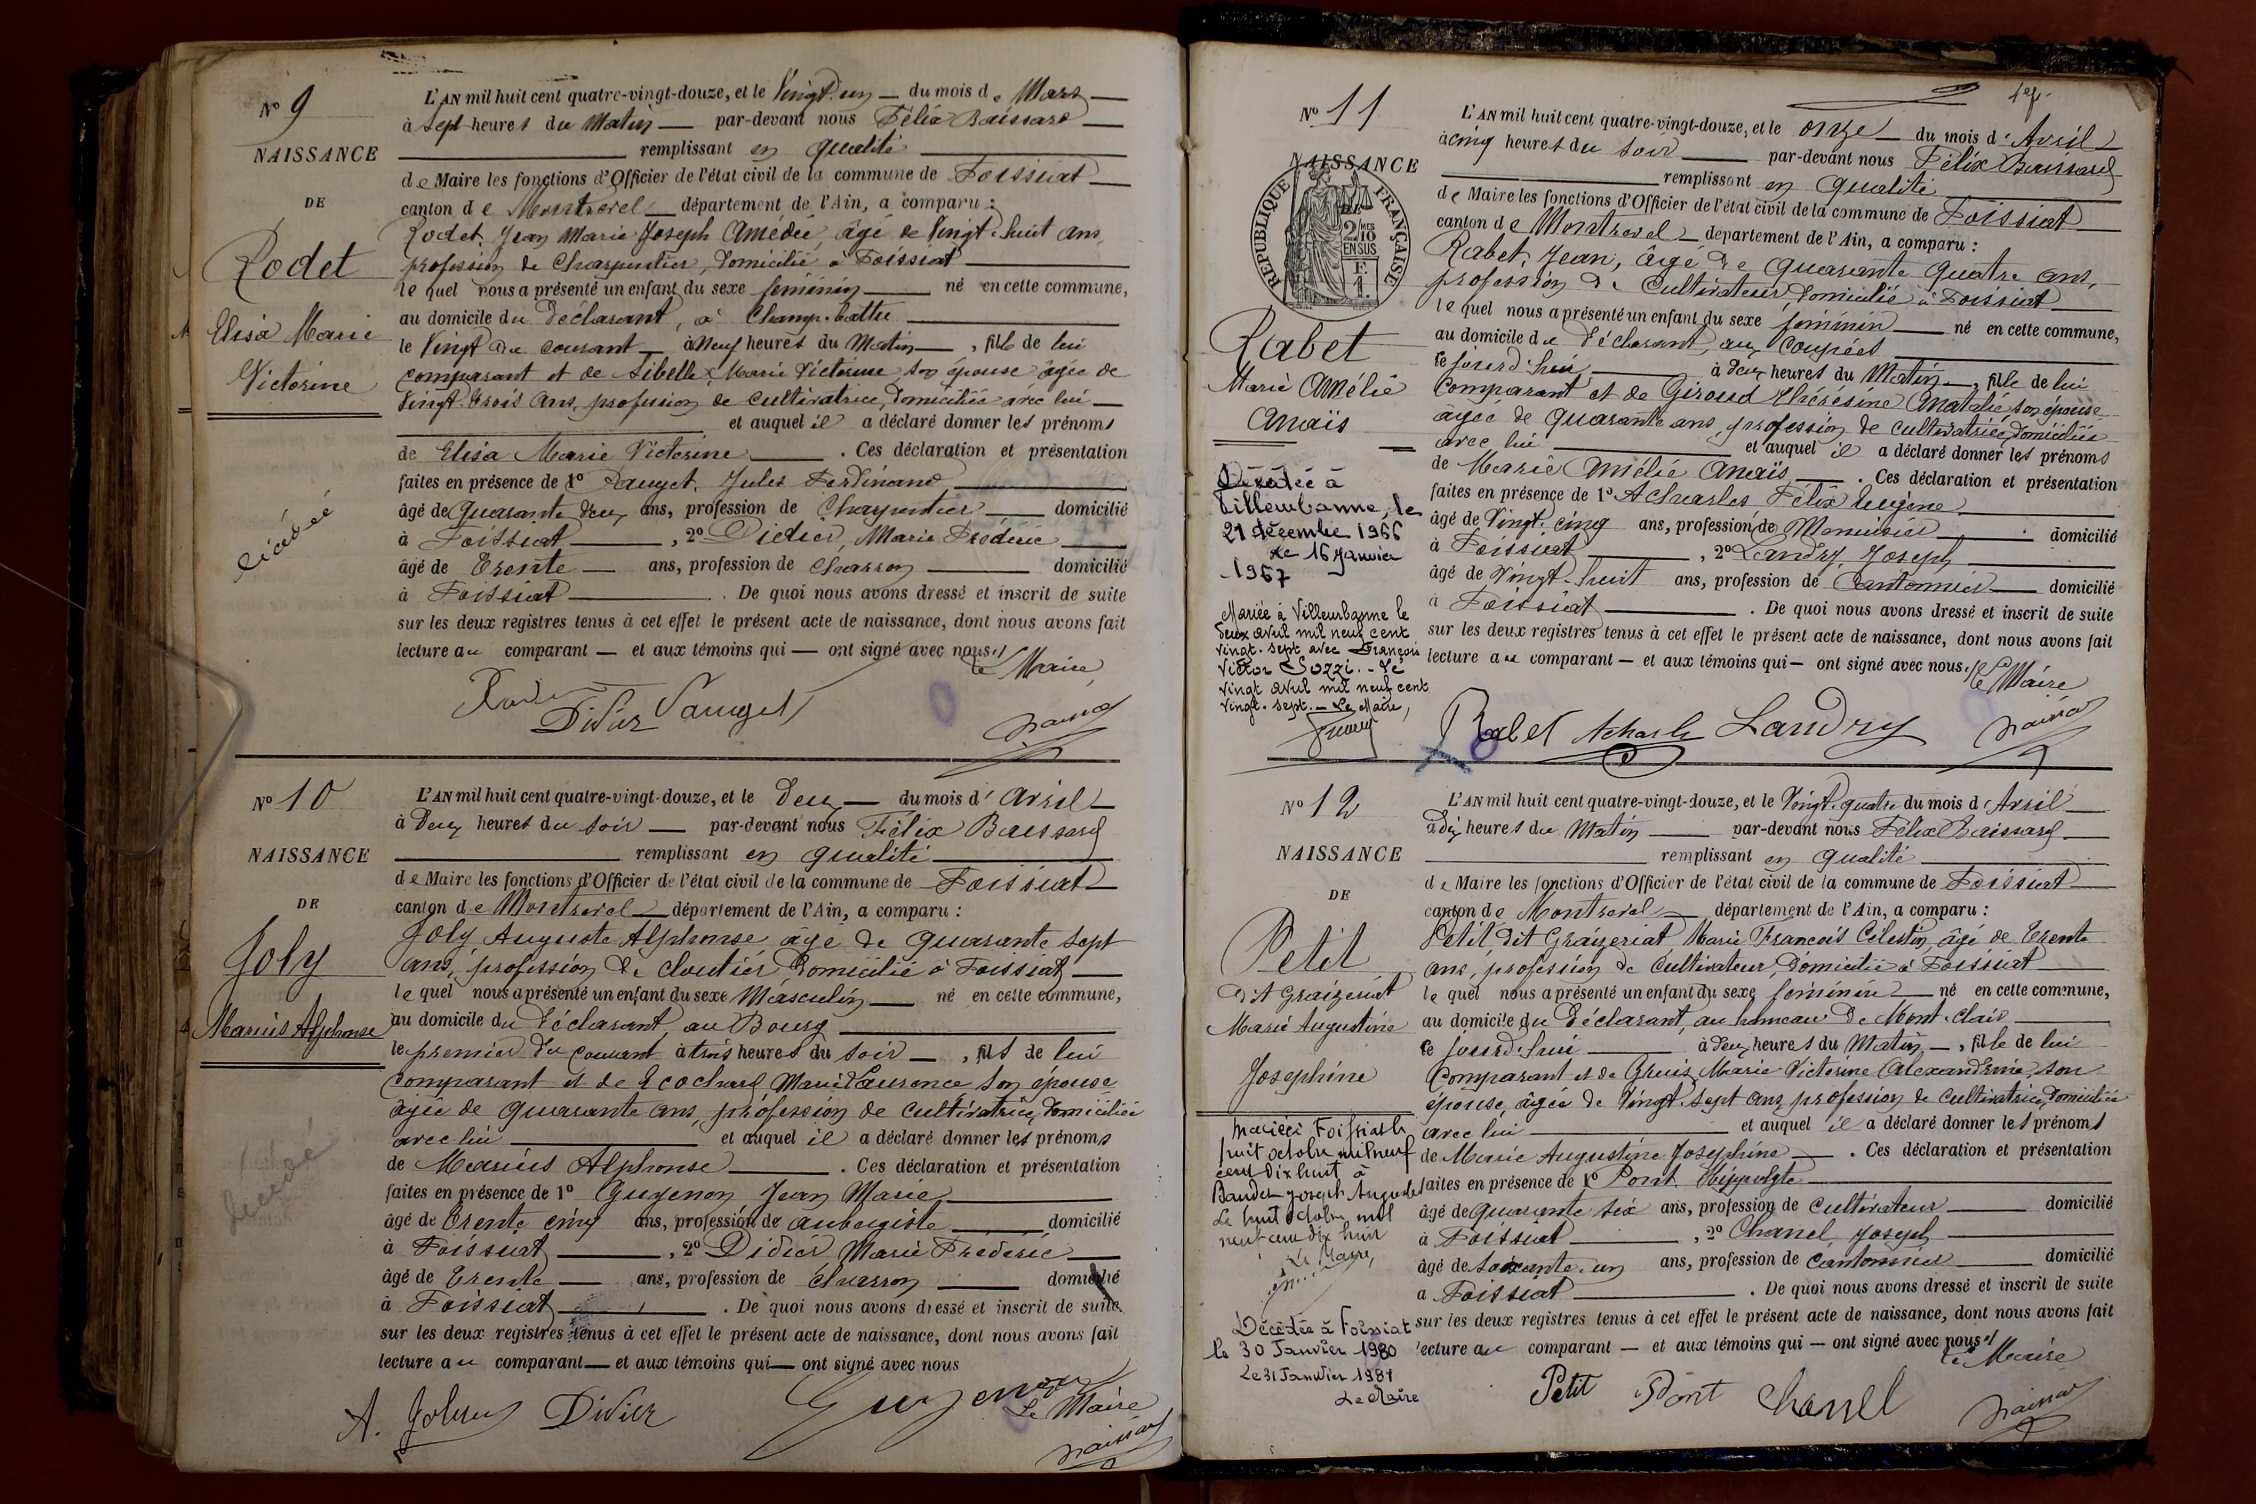 Nº 9
NAISSANCE
DE
Rodet
Elisa Marie
Victorine
L'AN mil huit cent quatre-vingt-douze, et le Vingt-un du mois de Mars
à Sept heures du Matin par-devant nous Félix Baissard
remplissant en qualité
de Maire les fonctions d'Officier de l'état civil de la commune de Foissiat
canton de Montrevel département de l'Ain, a comparu :
Rodet, Jean Marie Joseph Amédée, âgé de Vingt-huit ans,
profession de Charpentier, domicilié à Foissiat
lequel nous a présenté un enfant du sexe féminin né en cette commune,
au domicile du déclarant, à Champ-battu
le Vingt du courant à Neuf heures du Matin, fille de lui
comparant et de Sibelle, Marie Victorine son épouse âgée de
Vingt-trois ans, profession de cultivatrice, domiciliée avec lui
et auquel il a déclaré donner les prénoms
de Elisa Marie Victorine. Ces déclaration et présentation
faites en présence de 1º Pauget, Jules Ferdinand
âgé de Quarante deux ans, profession de Charpentier domicilié
à Foissiat, 2º Didier, Marie Frédéric
âgé de Trente ans, profession de Charron domicilié
à Foissiat. De quoi nous avons dressé et inscrit de suite
sur les deux registres tenus à cet effet le présent acte de naissance, dont nous avons fait
lecture au comparant et aux témoins qui ont signé avec nous
Le Maire,
Didier Pauget
Nº 10
NAISSANCE
DE
Joly
Marius Alphonse
L'AN mil huit cent quatre-vingt-douze, et le Deux du mois d'Avril
à Deux heures du Soir par-devant nous Félix Baissard
remplissant en qualité
de Maire les fonctions d'Officier de l'état civil de la commune de Foissiat
canton de Montrevel département de l'Ain, a comparu :
Joly, Auguste Alphonse âgé de Quarante sept
ans, profession de cloutier domicilié à Foissiat
lequel nous a présenté un enfant du sexe Masculin né en cette commune,
au domicile du déclarant, au Bourg
le premier du courant à trois heures du soir, fils de lui
comparant et de Ecochard Marie Laurence son épouse
âgée de quarante ans, profession de cultivatrice, domiciliée
avec lui et auquel il a déclaré donner les prénoms
de Marius Alphonse. Ces déclaration et présentation
faites en présence de 1º Guyenon Jean Marie
âgé de trente cinq ans, profession de aubergiste domicilié
à Foissiat, 2º Didier Marie Frédéric
âgé de Trente ans, profession de charron domicilié
à Foissiat. De quoi nous avons dressé et inscrit de suite
sur les deux registres tenus à cet effet le présent acte de naissance, dont nous avons fait
lecture au comparant et aux témoins qui ont signé avec nous
A. Didier Guyenon
Le Maire
Nº 11
NAISSANCE
RÉPUBLIQUE FRANÇAISE
2/10
EN SUS
Rabet
Marie Amélie
Anaïs
Décédée à
Villeurbanne, le
21 décembre 1966
Le 16 Janvier
1967
Mariée à Villeurbanne le
deux avril mil neuf cent
vingt-sept avec François
Victor Sozzi. - Le
vingt avril mil neuf cent
vingt-sept. - Le Maire,
L'AN mil huit cent quatre-vingt-douze, et le onze du mois d'Avril
à cinq heures du soir par-devant nous Félix Baissard
remplissant en qualité
de Maire les fonctions d'Officier de l'état civil de la commune de Foissiat
canton de Montrevel département de l'Ain, a comparu :
Rabet, Jean, âgé de quarante quatre ans,
profession de Cultivateur, domicilié à Foissiat
lequel nous a présenté un enfant du sexe féminin né en cette commune,
au domicile du déclarant, aux Coupées
ce jourd'hui à deux heures du Matin, fille de lui
comparant et de Giroud Thérésine Anatalie son épouse
âgée de quarante ans, profession de cultivatrice, domiciliée
avec lui et auquel il a déclaré donner les prénoms
de Marie Amélie Anaïs. Ces déclaration et présentation
faites en présence de 1º Acharles Félix Eugène
âgé de Vingt-cinq ans, profession de Menuisier domicilié
à Foissiat, 2º Landry, Joseph
âgé de Vingt-huit ans, profession de Cantonnier domicilié
à Foissiat. De quoi nous avons dressé et inscrit de suite
sur les deux registres tenus à cet effet le présent acte de naissance, dont nous avons fait
lecture au comparant et aux témoins qui ont signé avec nous
Le Maire
Rabet Acharles Landry
Nº 12
NAISSANCE
DE
Petit
dit Graizeriat
Marie Augustine
Josephine
Mariée à Foissiat le
huit octobre mil neuf
cent dix huit à
Baudet Joseph Auguste
Le huit octobre mil
neuf cent dix huit
Le Maire,
Décédée à Foissiat
le 30 Janvier 1980
Le 31 Janvier 1981
Le Maire
L'AN mil huit cent quatre-vingt-douze, et le Vingt-quatre du mois d'Avril
à dix heures du Matin par-devant nous Félix Baissard
remplissant en qualité
de Maire les fonctions d'Officier de l'état civil de la commune de Foissiat
canton de Montrevel département de l'Ain, a comparu :
Petit dit Graizeriat Marie François Célestin, âgé de Trente
ans, profession de Cultivateur, domicilié à Foissiat
lequel nous a présenté un enfant du sexe féminin né en cette commune,
au domicile du déclarant, au hameau de Mont-Clair
ce jourd'hui à deux heures du Matin, fille de lui
comparant et de Gruis, Marie Victorine Alexandrine, son
épouse, âgée de Vingt-sept ans, profession de Cultivatrice, domiciliée
avec lui et auquel il a déclaré donner les prénoms
de Marie Augustine Josephine. Ces déclaration et présentation
faites en présence de 1º Pont Hippolyte
âgé de quarante six ans, profession de Cultivateur domicilié
à Foissiat, 2º Chanel, Joseph
âgé de soixante-un ans, profession de Cantonnier domicilié
à Foissiat. De quoi nous avons dressé et inscrit de suite
sur les deux registres tenus à cet effet le présent acte de naissance, dont nous avons fait
lecture au comparant et aux témoins qui ont signé avec nous
Le Maire
Petit Pont Chanel